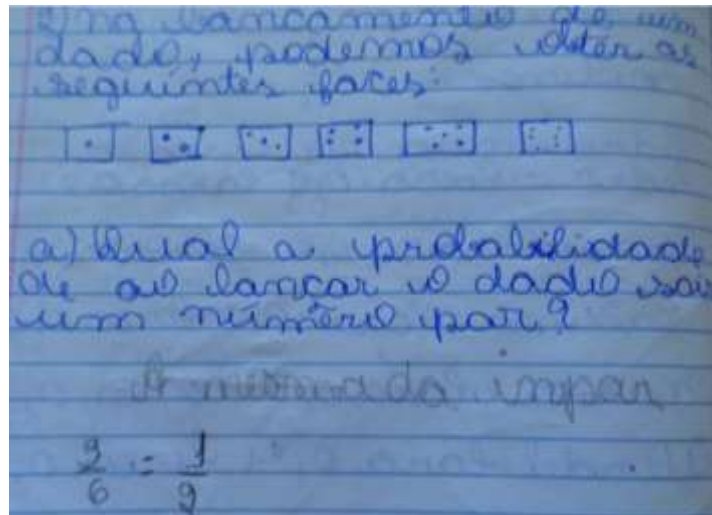 lançamento de um
dado, podemos obter as
seguintes faces:
a) Qual a probabilidade
de ao lançar o dado sair
um número par?
A mesma do impar
3/6 = 1/2